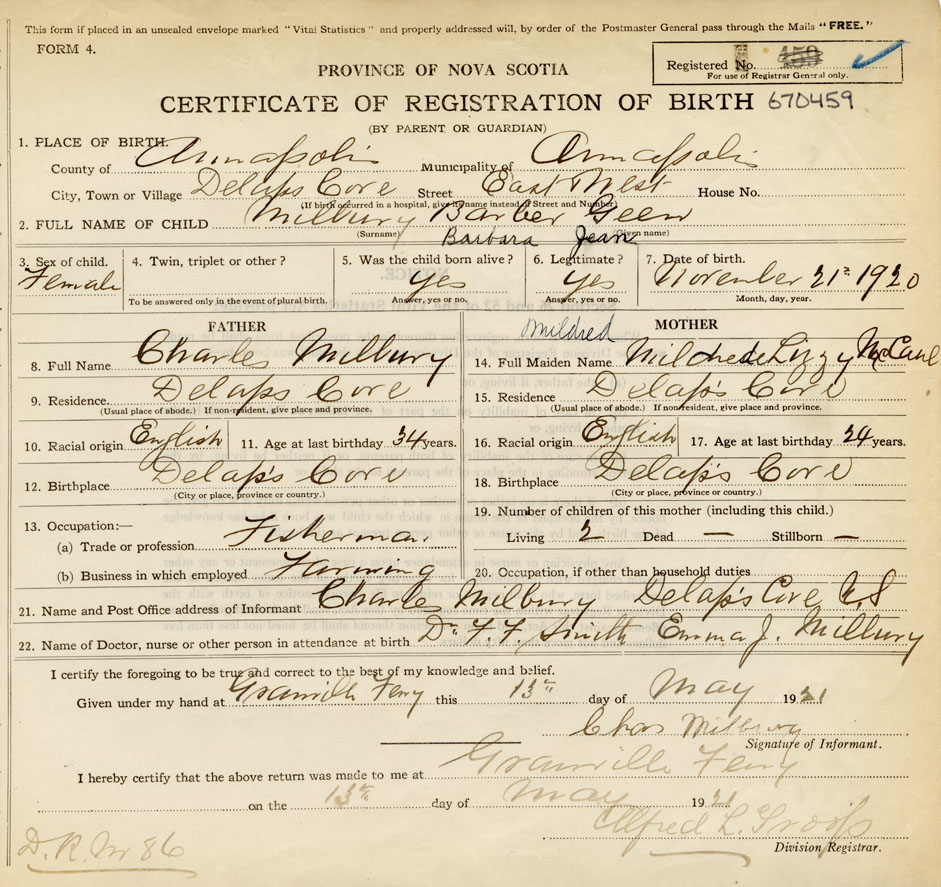 This form if placed in an unsealed envelope marked "Vital Statistics" and properly addressed will, by order of the Postmaster General pass through the Mails "FREE."
FORM 4.
Registered No. 459
For use of Registrar General only.
PROVINCE OF NOVA SCOTIA
CERTIFICATE OF REGISTRATION OF BIRTH 670459
(BY PARENT OR GUARDIAN)
1. PLACE OF BIRTH.
County of Annapolis Municipality of Annapolis
City, Town or Village Delaps Cove Street East & West House No.
(If birth occurred in a hospital, give its name instead of Street and Number)
2. FULL NAME OF CHILD Milbury Barber Geen
(Surname) Barbara Jean (Given name)
3. Sex of child. 4. Twin, triplet or other ? 5. Was the child born alive ? 6. Legitimate ? 7. Date of birth.
Female yes yes November 21st 1920
To be answered only in the event of plural birth. Answer, yes or no. Answer, yes or no. Month, day, year.
FATHER
8. Full Name Charles Milbury
9. Residence Delaps Cove
(Usual place of abode.) If non-resident, give place and province.
10. Racial origin English 11. Age at last birthday 34 years.
12. Birthplace Delap's Cove
(City or place, province or country.)
13. Occupation:—
(a) Trade or profession Fisherman
(b) Business in which employed Farming
Mildred MOTHER
14. Full Maiden Name Mildrede Lizzy McCaul
15. Residence Delap's Cove
(Usual place of abode.) If non-resident, give place and province.
16. Racial origin English 17. Age at last birthday 24 years.
18. Birthplace Delap's Cove
(City or place, province or country.)
19. Number of children of this mother (including this child.)
Living 2 Dead — Stillborn —
20. Occupation, if other than household duties
21. Name and Post Office address of Informant Charles Milbury Delap's Cove N.S
22. Name of Doctor, nurse or other person in attendance at birth Dr F. F. Smith Emma J. Milbury
I certify the foregoing to be true and correct to the best of my knowledge and belief.
Given under my hand at Granville Ferry this 13th day of May 1921
Chas Milbury
Signature of Informant.
I hereby certify that the above return was made to me at Granville Ferry
on the 13th day of May 1921
Alfred L. Troop
Division Registrar.
D. R. No 86